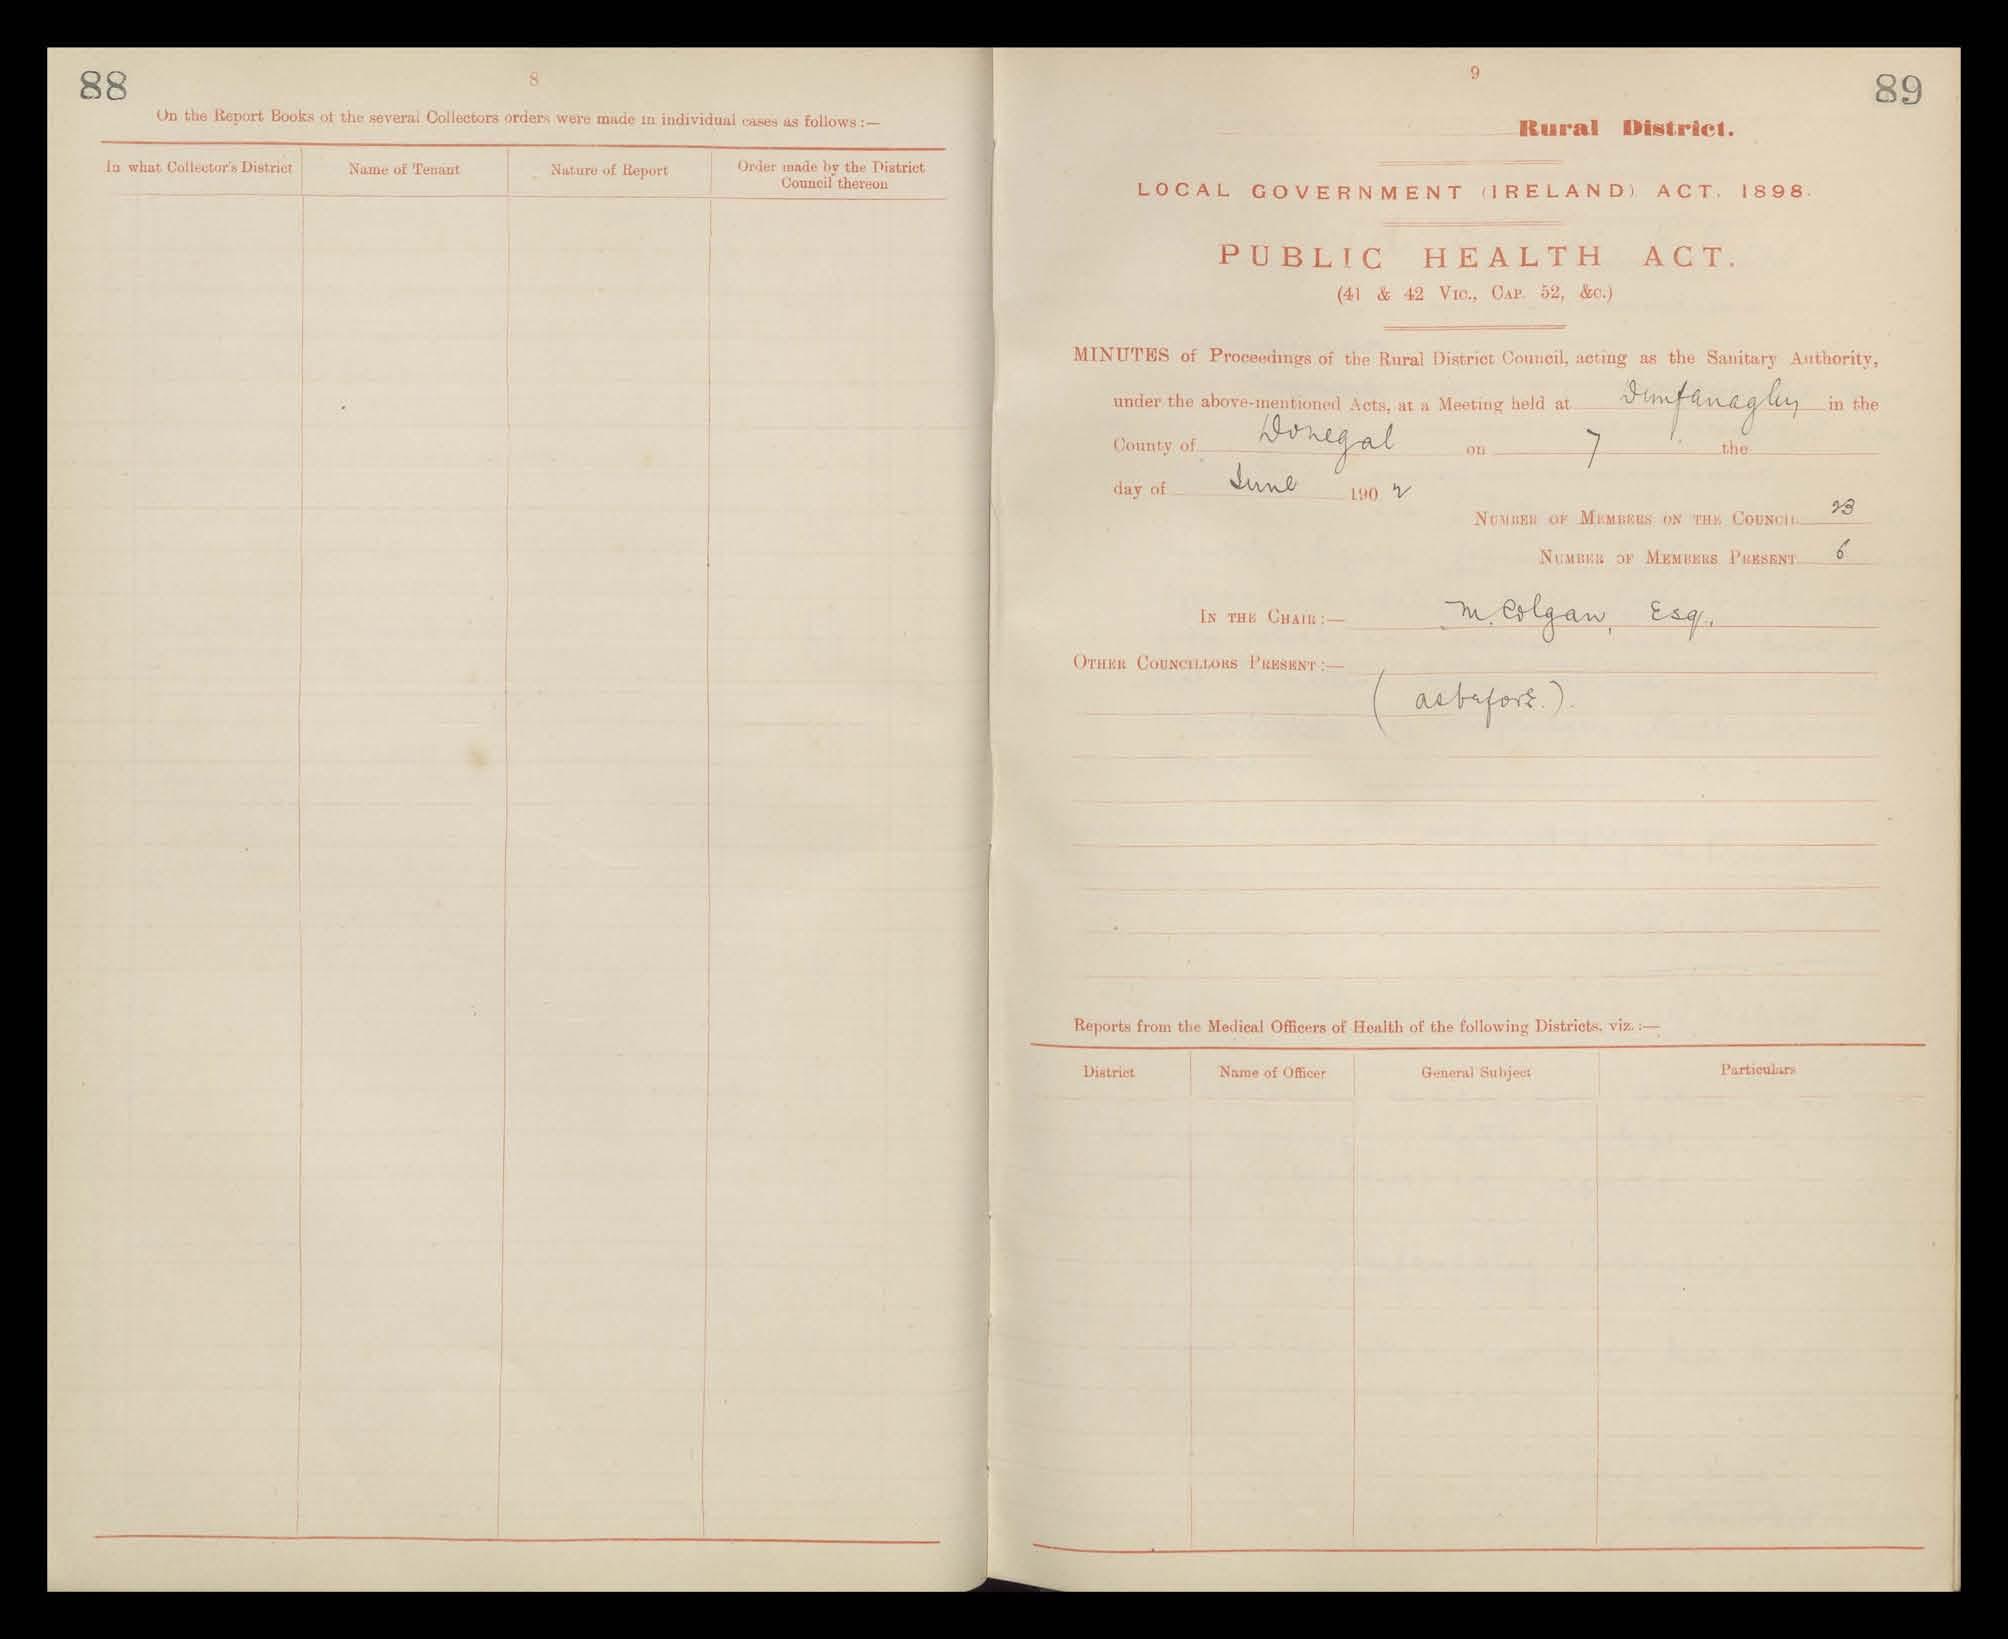 88
8
On the Report Books of the several Collectors orders were made in individual cases as follows :—
In what Collector's District
Name of Tenant
Nature of Report
Order made by the District Council thereon
9
89
Rural District.
LOCAL GOVERNMENT (IRELAND) ACT. 1898.
PUBLIC HEALTH ACT.
(41 & 42 Vic., Cap. 52, &c.)
MINUTES of Proceedings of the Rural District Council, acting as the Sanitary Authority,
under the above-mentioned Acts, at a Meeting held at Dunfanaghy in the
County of Donegal on 7 the
day of June 1902
Number of Members on the Council 23
Number of Members Present 6
In the Chair :— M. Colgan, Esq.,
Other Councillors Present :—
( as before. ).
Reports from the Medical Officers of Health of the following Districts. viz. :—
District
Name of Officer
General Subject
Particulars